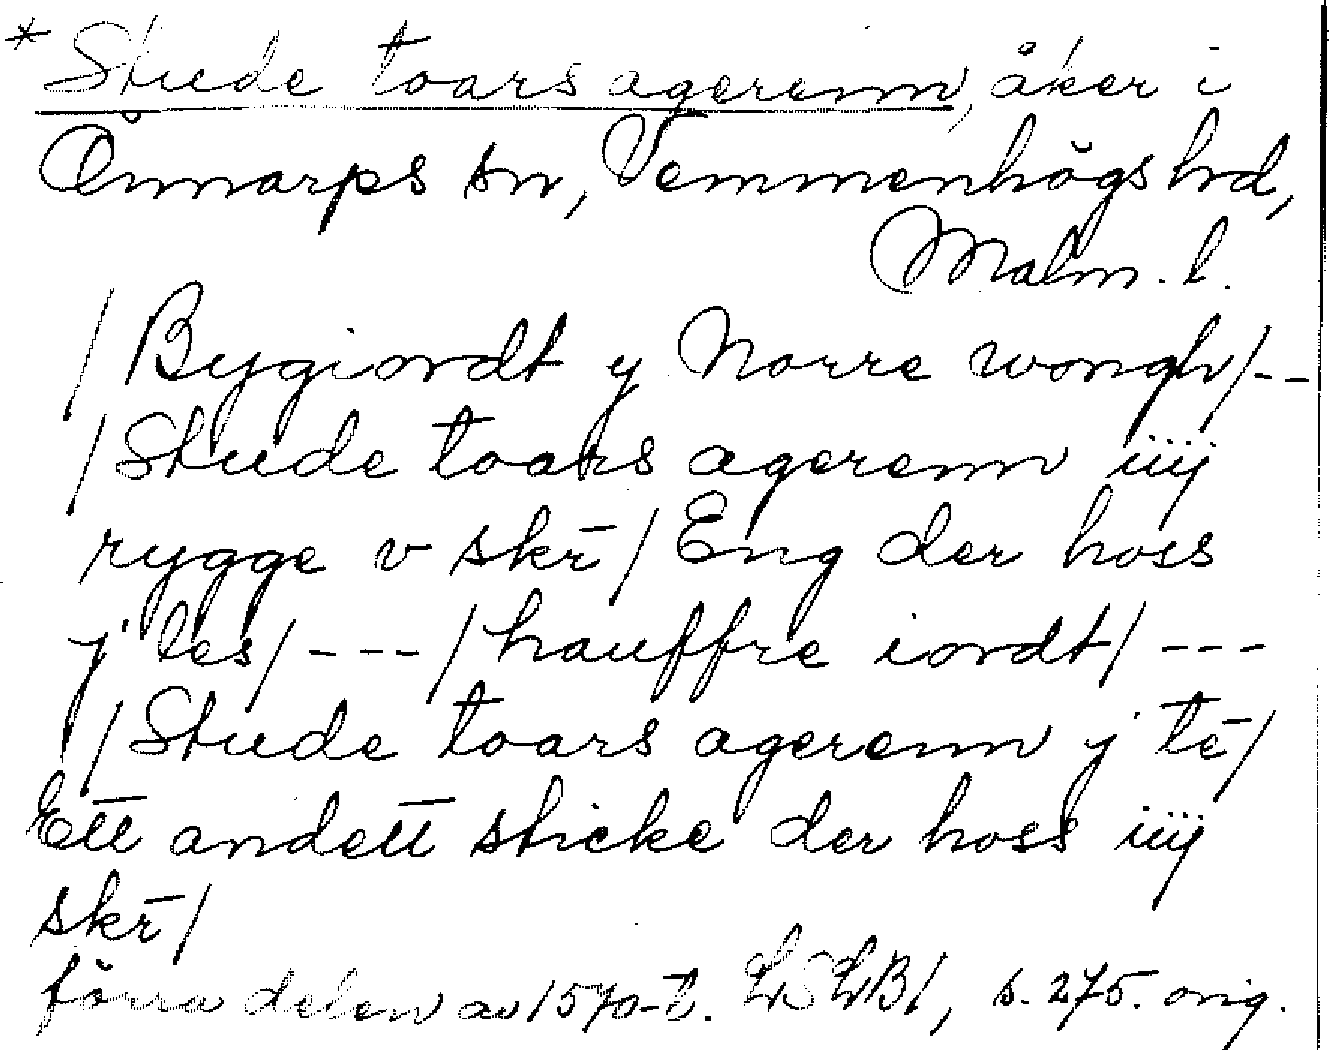 *Stude toars agerenn, åker i
Önnarps sn, Vemmenhögs hrd,
Malm. l.
/Bygiordt y Norre wongh/--
/Stude toars agerenn iiij
rygge v skr̄/Eng der hoss
j les/---/hauffre iordt/---
/Stude toars agerenn j tē/
Ett andett sticke der hoss iiij
skr̄/
förra delen av 1570-t. LSLB1, s. 275. orig.